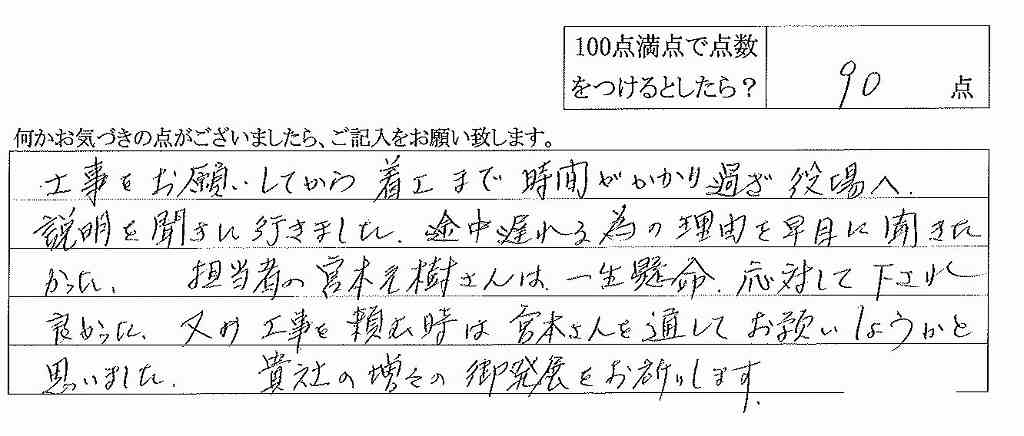 100点満点で点数
をつけるとしたら？
90 点
何かお気づきの点がございましたら、ご記入をお願い致します。
工事をお願いしてから着工まで時間がかかり過ぎ役場へ
説明を聞きに行きました。途中遅れる為の理由を早目に聞きた
かった、 担当者の宮本元樹さんは、一生懸命、応対して下され
良かった、又の工事を頼む時は宮本さんを通してお願いしようかと
思いました。 貴社の増々の御発展をお祈りします。